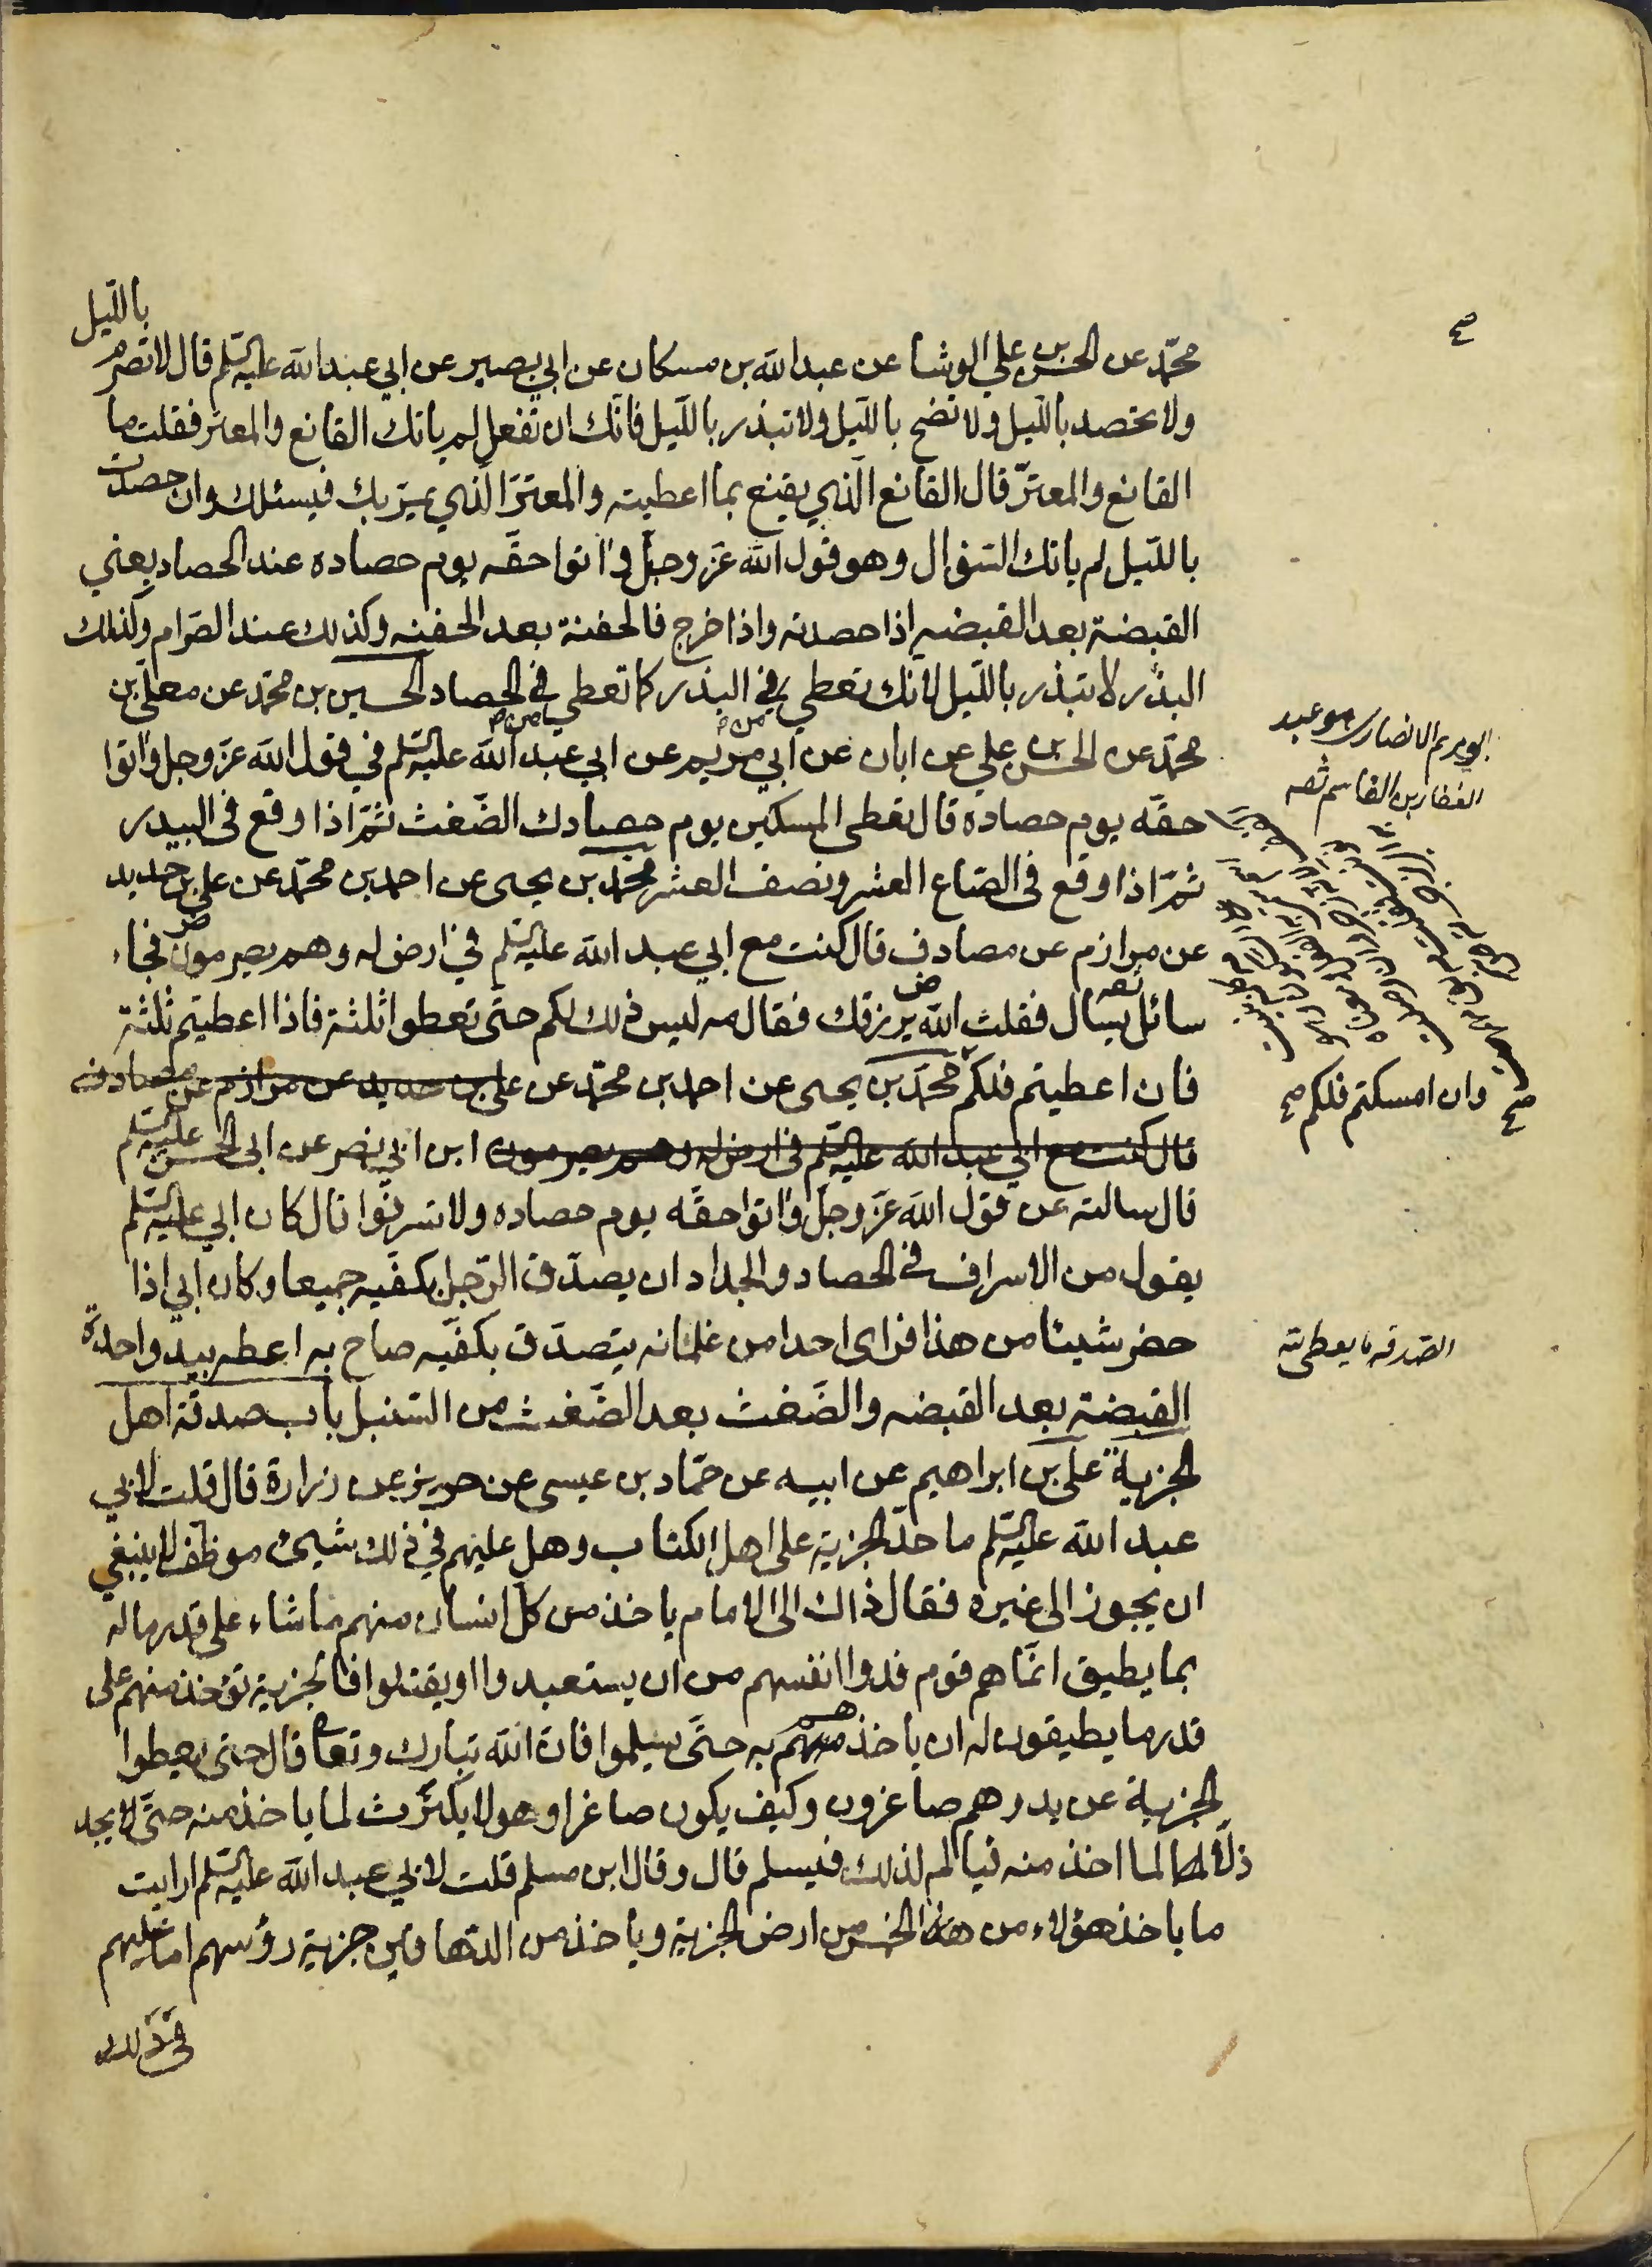 بالليل
محمّد عن الحسن بن علي الوشا عن عبد الله بن مسكان عن ابي بصير عن ابي عبد الله عليه السّلم قال لا تصرم
ولا تحصد بالليل ولا تضح بالليل ولا تبذر بالليل فانّك ان تفعل لم ياتك القانع والمعتر فقلت ما
القانع والمعترّ قال القانع الّذي يقنع بما اعطيته والمعترّ الّذي يمرّ بك فيسئلك وان حصدت
بالليل لم ياتك السّؤال وهو قول الله عزّ وجلّ واتوا حقّه يوم حصاده عند الحصاد يعني
القبضة بعد القبضه اذا حصدته واذا خرج فالحفنة بعد الحفنه وكذلك عند الصّرام وكذلك
البذر لا تبذر بالليل لانّك تعطي في البذر كما تعطي في الحصاد الحسين بن محمّد عن معلّى بن
محمّد عن الحسن بن علي عن ابان عن ابي مريم عن ابي عبد الله عليه السّلم في قول الله عزّ وجل واتوا
حقّه يوم حصاده قال تعطى المسكين يوم حصادك الضّغث ثمّ اذا وقع في البيدر
ثمّ اذا وقع في الصّاع العشر ونصف العشر محمّد بن يحيى عن احمد بن محمّد عن علي بن حديد
عن مرازم عن مصادف قال كنت مع ابي عبد الله عليه السّلم في ارض له وهم يصرمون فجاء
سائل يسال فقلت الله يرزقك فقال مه ليس ذلك لكم حتّى تعطوا ثلثة فاذا اعطيتم ثلثة
فان اعطيتم فلكم محمّد بن يحيى عن احمد بن محمّد عن علي بن حديد عن مرازم عن مصادف
قال كنت مع ابي عبد الله عليه السّلم في ارض له وهم يصرمون ابن ابي نصر عن ابي الحسن عليه السّلم
قال سالته عن قول الله عزّ وجلّ واتوا حقّه يوم حصاده ولا تسرفوا قال كان ابي عليه السّلم
يقول من الاسراف في الحصاد والجداد ان يصدّق الرّجل بكفّيه جميعا وكان ابي اذا
حضر شيئا من هذا فراى احدا من غلمانه يتصدّق بكفّيه صاح به اعطه بيد واحدة
القبضة بعد القبضه والضّغث بعد الضّغث من السّنبل باب صدقة اهل
الجزية علي بن ابراهيم عن ابيه عن حمّاد بن عيسى عن حريز عن زرارة قال قلت لابي
عبد الله عليه السّلم ما حدّ الجزية على اهل الكتاب وهل عليهم في ذلك شيئ موظّف لا ينبغي
ان يجوز الى غيره فقال ذاك الى الامام ياخذ من كلّ انسان منهم ما شاء على قدر ماله
بما يطيق انّما هم قوم فدوا انفسهم من ان يستعبدوا او يقتلوا فالجزية تؤخذ منهم على
قدر ما يطيقون له ان ياخذهم به حتّى يسلموا فانّ الله تبارك وتعا قال حتى يعطوا
الجزية عن يد وهم صاغرون وكيف يكون صاغرا وهو لا يكترث لما ياخذ منه حتّى لا يجد
ذلّا لما اخذ منه فيالم لذلك فيسلم قال وقال ابن مسلم قلت لابي عبد الله عليه السّلم ارايت
ما ياخذ هؤلاء من هذا الخمس من ارض الجزية وياخذ من الدّهاقين جزية رؤسهم اما عليهم
في ذلك
ابو مريم الانصاري هو عبد
الغفار بن القاسم ثقه
وان امسكتم فلكم صح
الصدقه ما يعطى لله